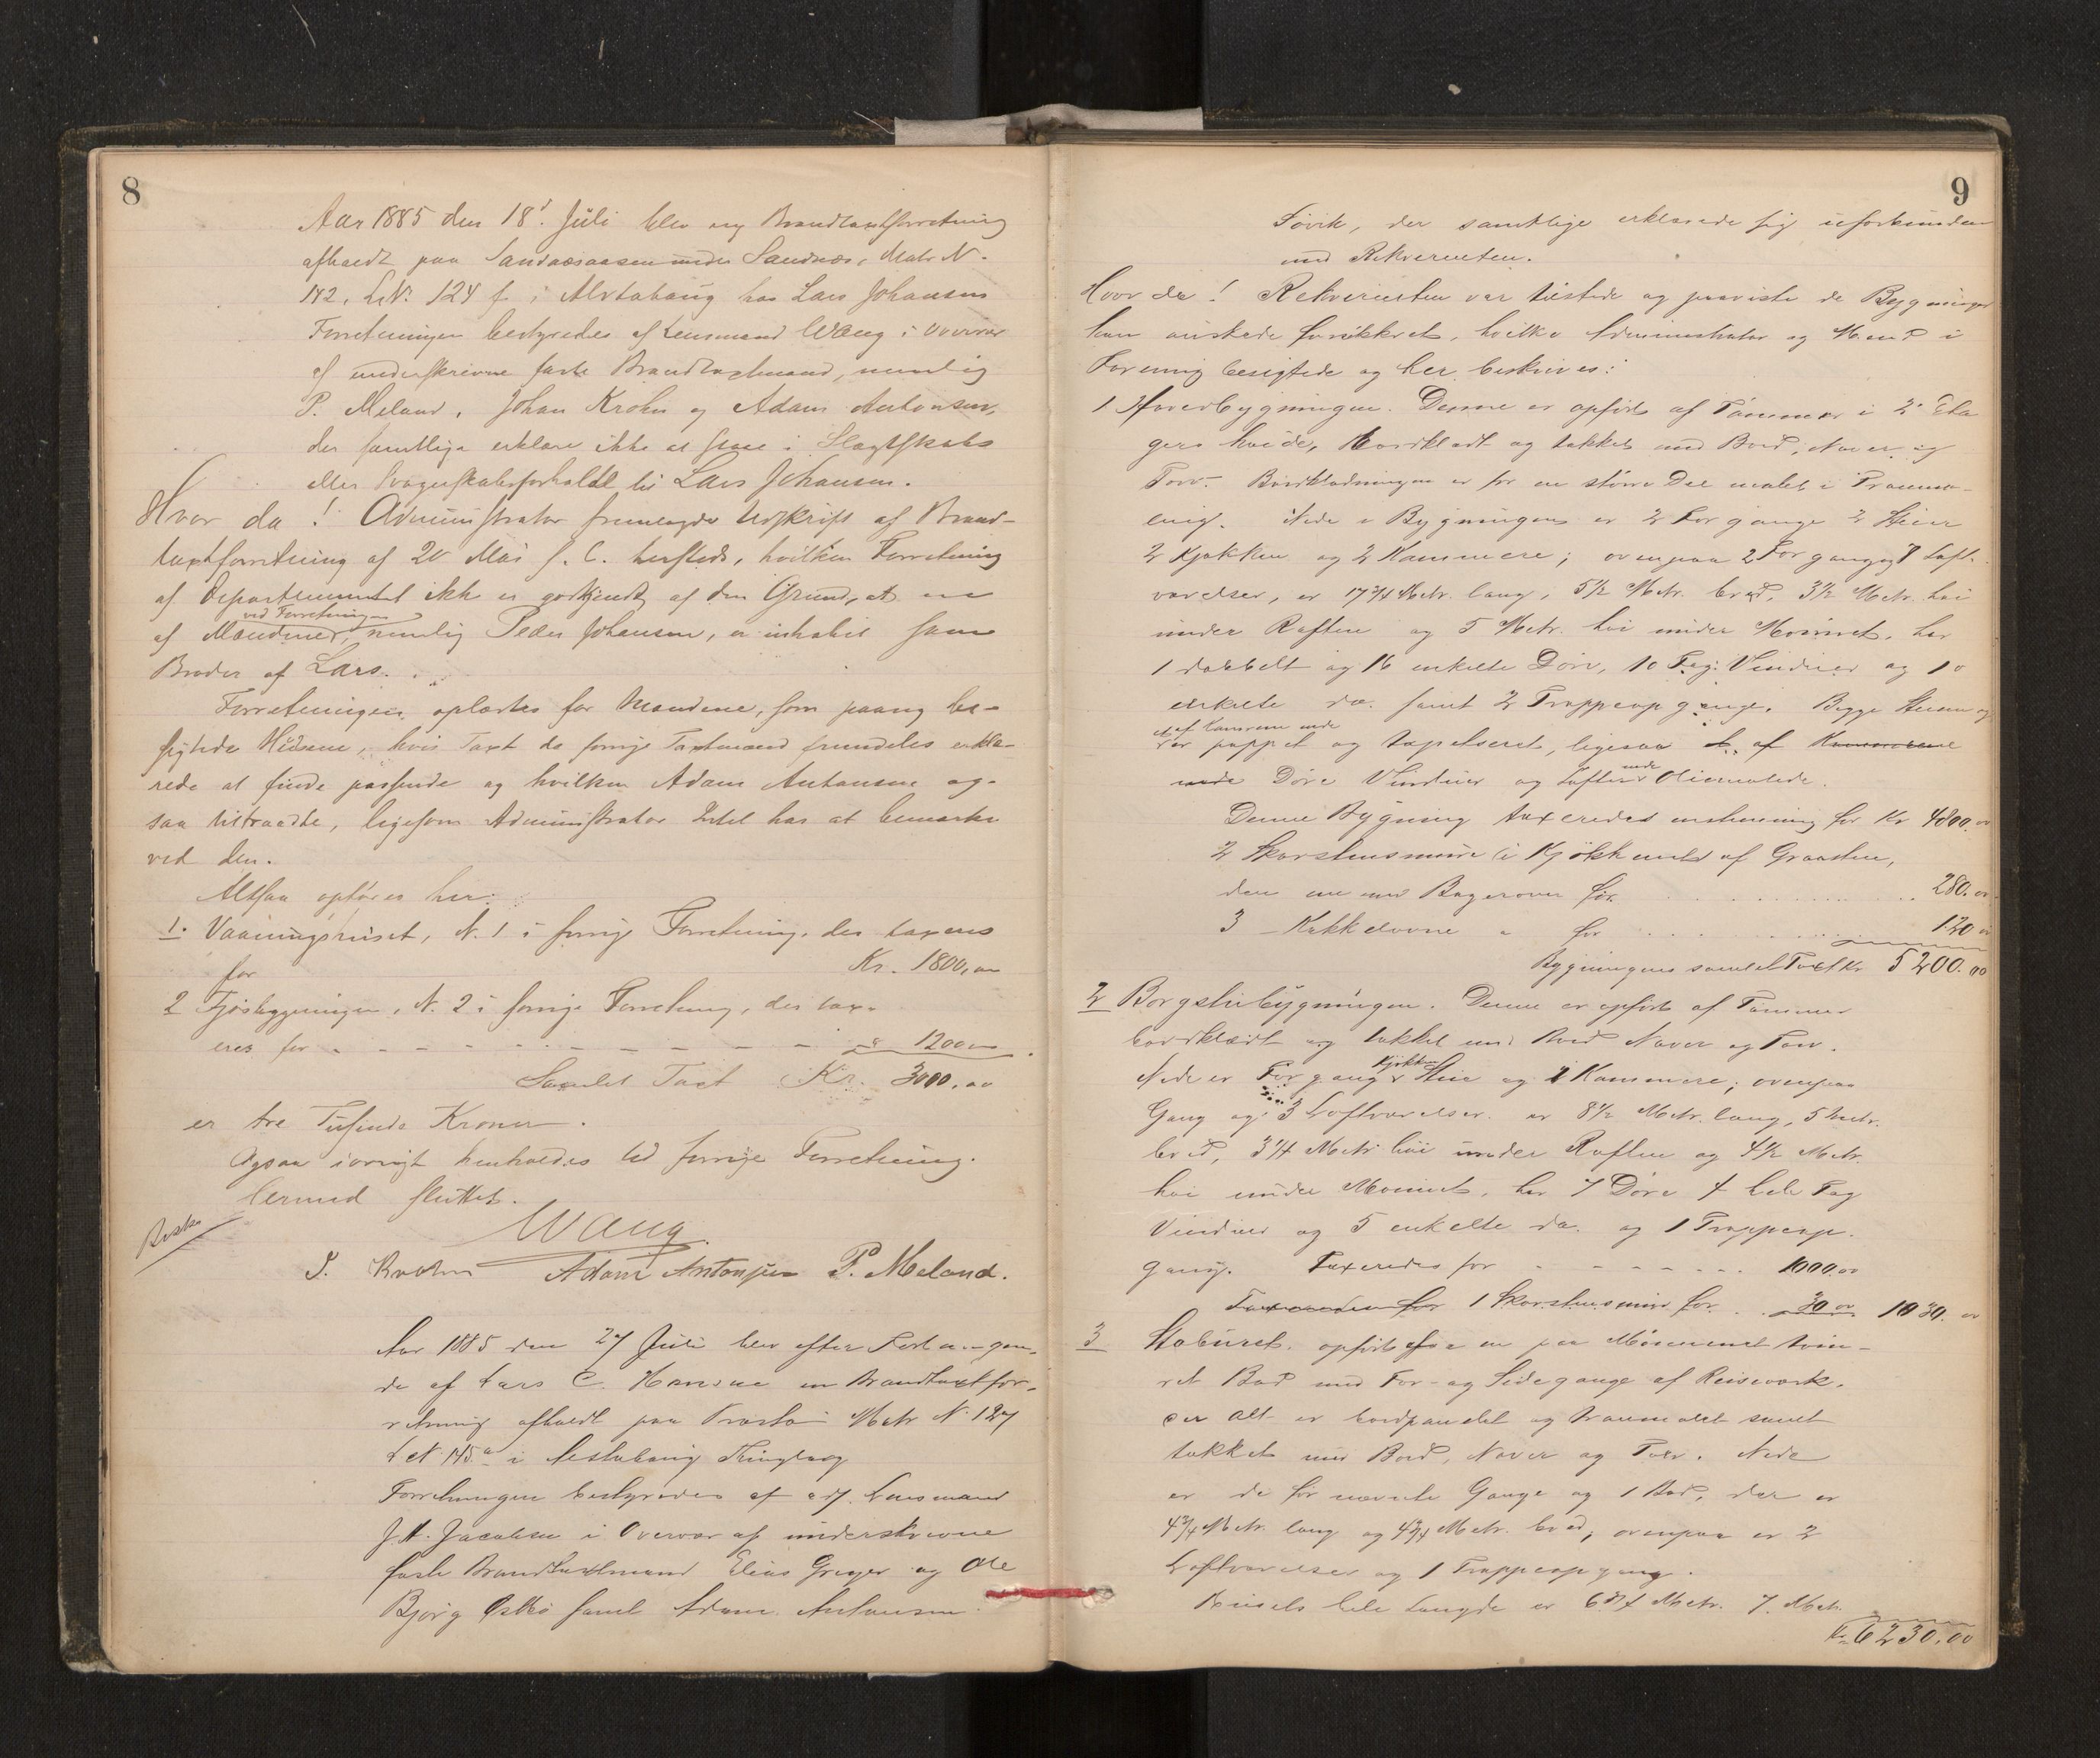 8
Aar 1885 den 18' Juli blev ny Brandtaxtforretning
afholdt paa Sandaasaasen under Sandnæs, Matr N.
142, L.N. 124 f i Alstahaug hos Lars Johansen
Forretningen bestyredes af Lensmand Wang i Overvær
af underskrevne faste Brandtaxtmænd, nemlig
P. Meland, Johan Krohn og Adam Antonsen,
der samtlige erklare ikke at staae i Slagtskabs
eller Svogerskabsforhold til Lars Johansen.
Hvor da! Administrator fremlagde Udskrift af Brand-
taxtforretning af 20 Mai f. C. hersteds, hvilken Forretning
af Departementet ikke er godkjendt af den Grund, at en
ved Forretningen
af Mændene, nemlig Peder Johansen, er inhabil som
Broder af Lars.
Forretningen oplæstes for Mændene, som paany be-
sigtede Husene, hvis Taxt de forrige Taxtmænd fremdeles erklæ-
rede at finde passende og hvilken Adam Antonsen og-
saa tiltraadte, ligesom Administrator Intet har at bemærke
ved den.
Altsaa opføres her:
1. Vaaningshuset, N. 1 i forrige Forretning, der taxeres
for Kr. 1800,00
2 Fjøsbygningen, N. 2 i forrige Forretning, der tax-
eres for - - - - - - - - - - " 1200 00
Samlet Taxt Kr. 3000,00
er tre Tusinde Kroner.
Ogsaa iøvrigt henholdes til forrige Forretning.
Hermed sluttet.
Wang.
J. Krohn Adam Antonsen P. Meland.
Aar 1885 den 27 Juli blev efter Forlangen-
de af Lars C. Hansen en Brandtaxtfor-
retning afholdt paa Matr N. 127
L N. 145a i Alstahaug Thinglag
Forretningen bestyredes af adj. Lensmand
J. H. Jacobsen i Overvær af underskrevne
faste Brandtaxtmænd Elias Greger og Ole
Bjørg samt Adam Antonsen
9
Søvik, der samtlige erklærede sig uforbunden
med Rekvirenten.
Hvor da! Rekvirenten var tilstede og paaviste de Bygninger
han ønskede forsikkret, hvilke Administrator og Mænd i
Forening besigtede og her beskrives:
1 Hovedbygningen. Denne er opført af Tømmer i 2 Eta-
gers høide, Bordklædt og tækket med Bord, Næver og
Torv. Bordklædningen er for en større Del malet i Tranma-
ling. Nede i Bygningen er 2 Forgange 2 Stuer
2 Kjøkken og 2 Kammere; ovenpaa 2 Forgange 7 Loft-
værelser, er 17 3/4 Metr. lang, 5 1/2 Metr. bred, 3 1/2 Metr. høi
under Raften og 5 Metr. høi under Mønnet, har
1 dobbelt og 16 enkelte Døre, 10 Fag Vinduer og 10
enkelte do. samt 2 Trappeopgange. Begge Stuerne og
af Kamrene nede
er pappet og tapetseret, ligesaa af Kammerene
nede Døre Vinduer og Lofter nede Oliemalede.
Denne Bygning taxeredes enstemmig for Kr 4800.00
2 Skorstensmure i Kjøkkenet af Graasten,
den ene med Bagerovn for . . . . . . . 280.00
3 Kakkelovne " for . . . . . . 120 00
Bygningens samlet Taxt Kr 5200.00
2 Borgstubygningen. Denne er opført af Tømmer
bordklædt og tækket med Bord Næver og Torv.
Nede er Forgang Kjøkken Stue og 1 Kammere; ovenpaa
Gang og 3 Loftværelser. er 8 1/2 Metr. lang, 5 Metr.
bred, 3 1/4 Metr høi under Raften og 4 1/2 Metr.
høi under Mønnet, har 7 Døre 4 hele Fag
Vinduer og 5 enkelte do. og 1 Trappeop-
gang. Taxeredes for - - - - - 1000.00
Taxeredes for 1 Skorstensmur for . . 30 00 1030.00
3 Stabures. opført af
ret Bod med For- og Sidegange af Reisværk.
Alt er bordpanelet og tranmalet samt
tækket med Bord, Næver og Torv. Nede
er de før nævnte Gange og 1 Bod, der er
4 3/4 Metr. lang og 4 3/4 Metr. bred; ovenpaa er 2
Loftværelser og 1 Trappeopgang.
Husets hele Længde er 6 3/4 Metr. 7. Metr.
Kr. 6230.00